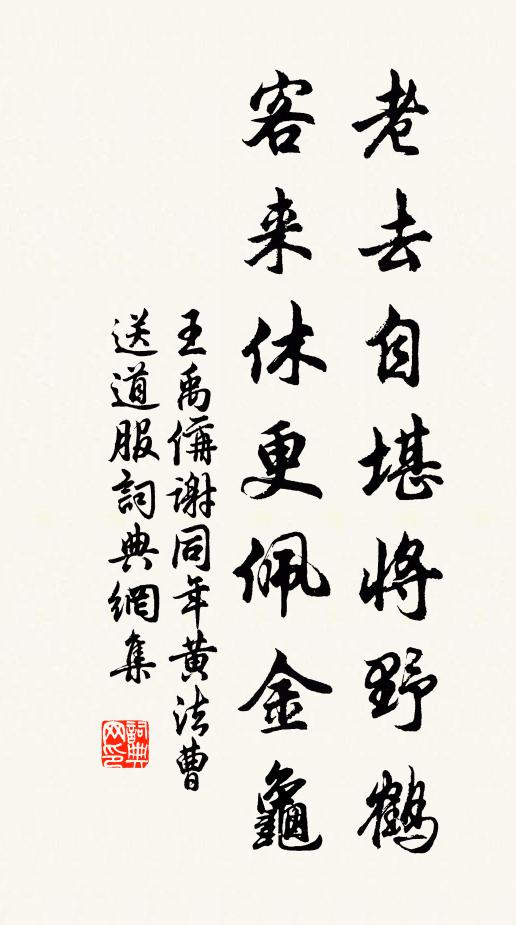 老去自堪將野鶴
客来休更佩金龜
王禹偁謝同年黄法曹
送道服詞典網集
詞典
网印